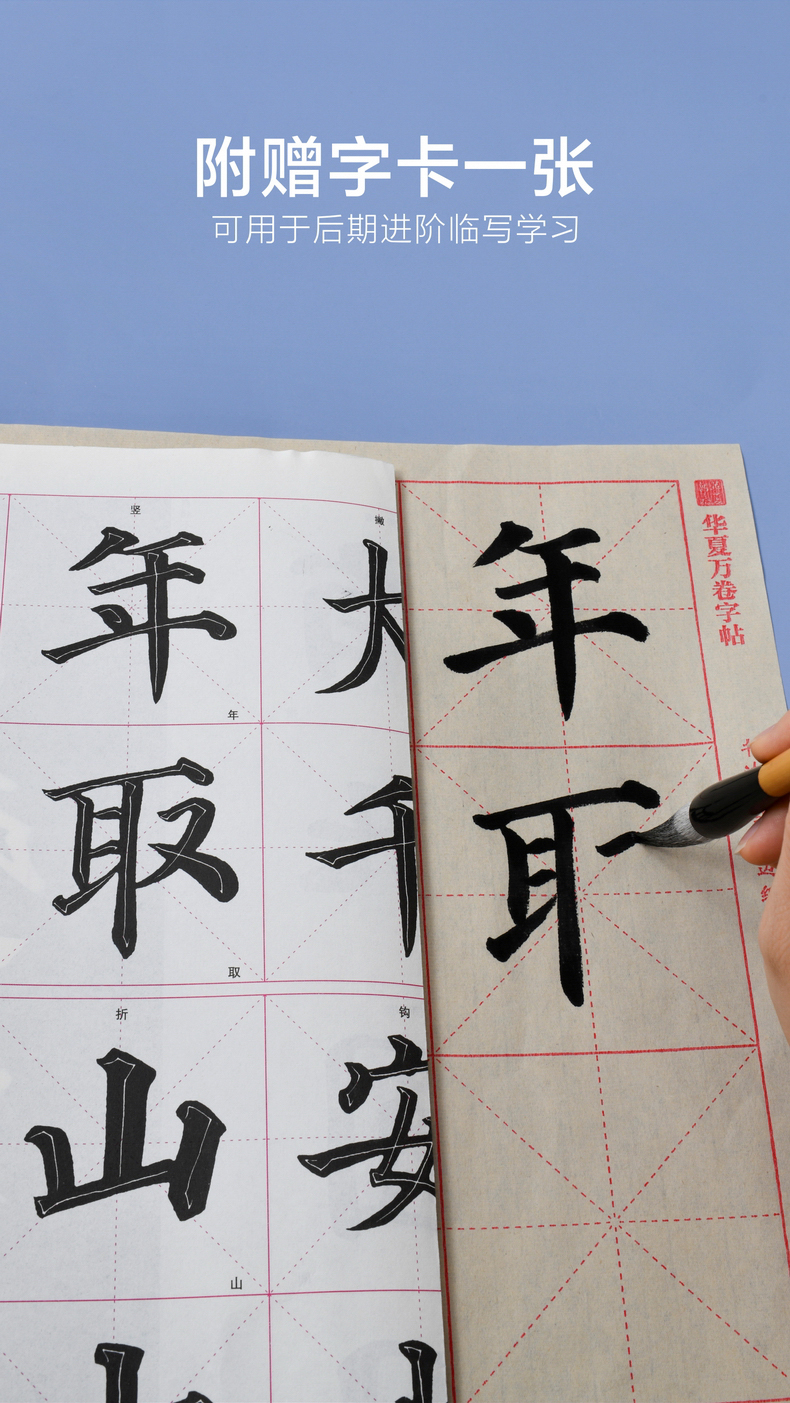 附赠字卡一张
可用于后期进阶临写学习
竖
撇
年
年
取
千
取
折
钩
山
安
山
年
取
华夏万卷字帖